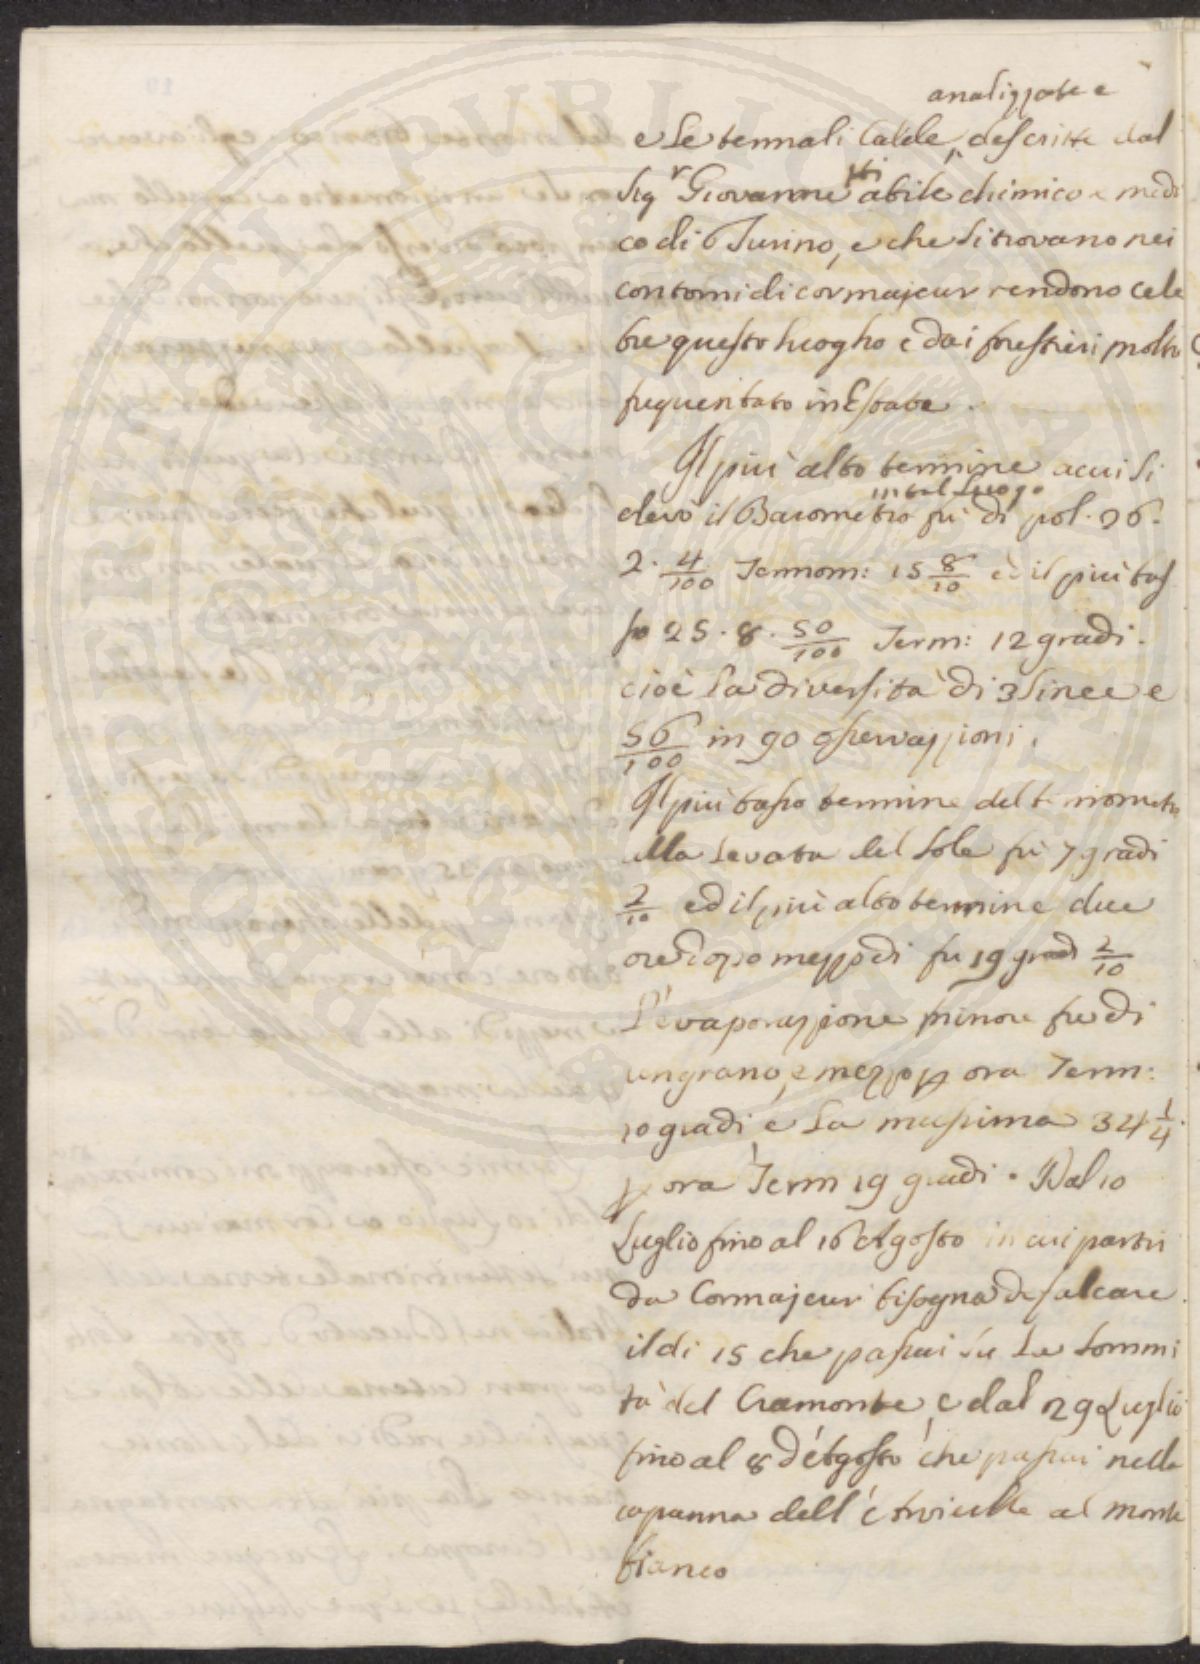 analizzate e
e le termali Calde, descritte dal
Sigr Giovanneti abile chimico e medi
co di Turino, e che si trovano nei
contorni di cormajeur rendono cele
bre questo luogho e dai forestieri molto
frequentato in Estate.
Il più alto termine a cui si
in tal luogo
elevò il Barometro fù di pol. 26.
2. 4/100 Termom: 15 8/10 è il più bas
so 25. 8. 50/100 Term: 12 gradi.
cioè la diversità di 3 linee e
56/100 in 90 osservazzioni.
Il più basso termine del termometro
alla levata del Sole fù 7 gradi
2/10 ed il più alto termine due
ore dopo mezzodi fu 19 gradi 2/10
L'evaporazzione minore fu di
un grano, e mezzo p ora Term:
10 gradi e la massima 34 1/4.
p ora Term 19 gradi. Dal 10
Luglio fino al 16 Agosto in cui partii
da Cormajeur bisogna defalcare
il di 15 che passai su la Sommi
tà del Cramonte, e dal 29 Luglio
fino al 8 d'Agosto che passai nella
capanna dell' al monte
bianco